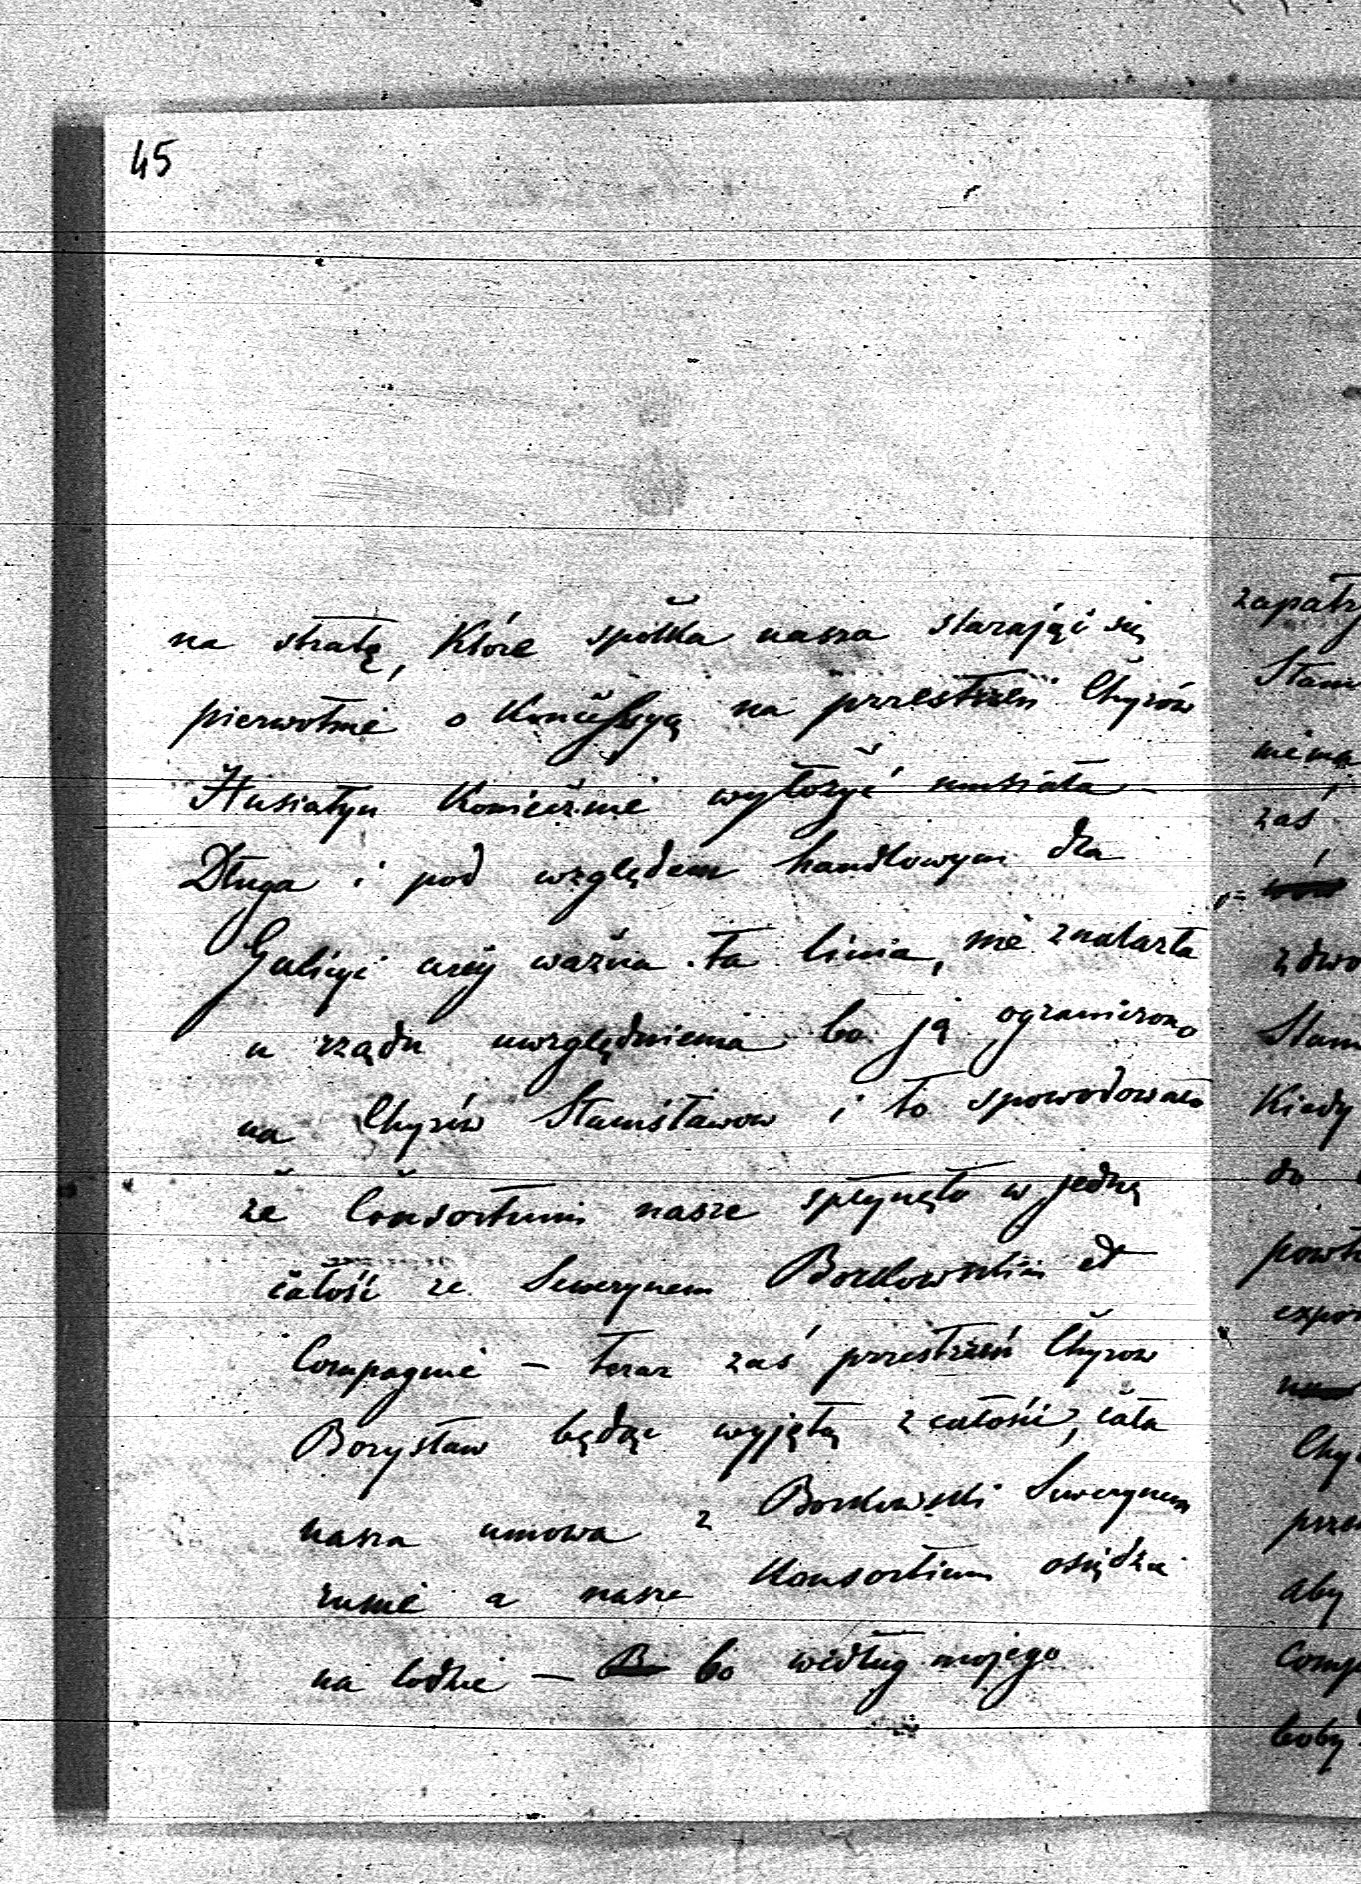 45
na stratę, które spółka nasza starająć się
pierwotnie o Koncessyą na przestrzeń Chyrów
Husiatyn koniecznie wyłożyć musiała –
Długa i pod względem handlowym dla
Galicyi ważna ta linia, nie znalazła
u rządu uwzględnienia bo ją ograniczono
na Chyrów Stanisławow i to spowodowało
że Consortium nasze spłynęło w jedną
całość ze Sewerynem Borkowskim et
Compagnie – teraz zaś przestrzeń Chyrow
Borysław będąc wyjętą z całości, cała
nasza umowa z Borkowski Sewerynem
runie a nasze Konsortium osiędzie
na lodzie – bo według mojego
zapatrz
Stani
niema
zaś
zdwo
Stani
Kiedy
do
powt
expor
Chy
prze
aby
Comp
boby